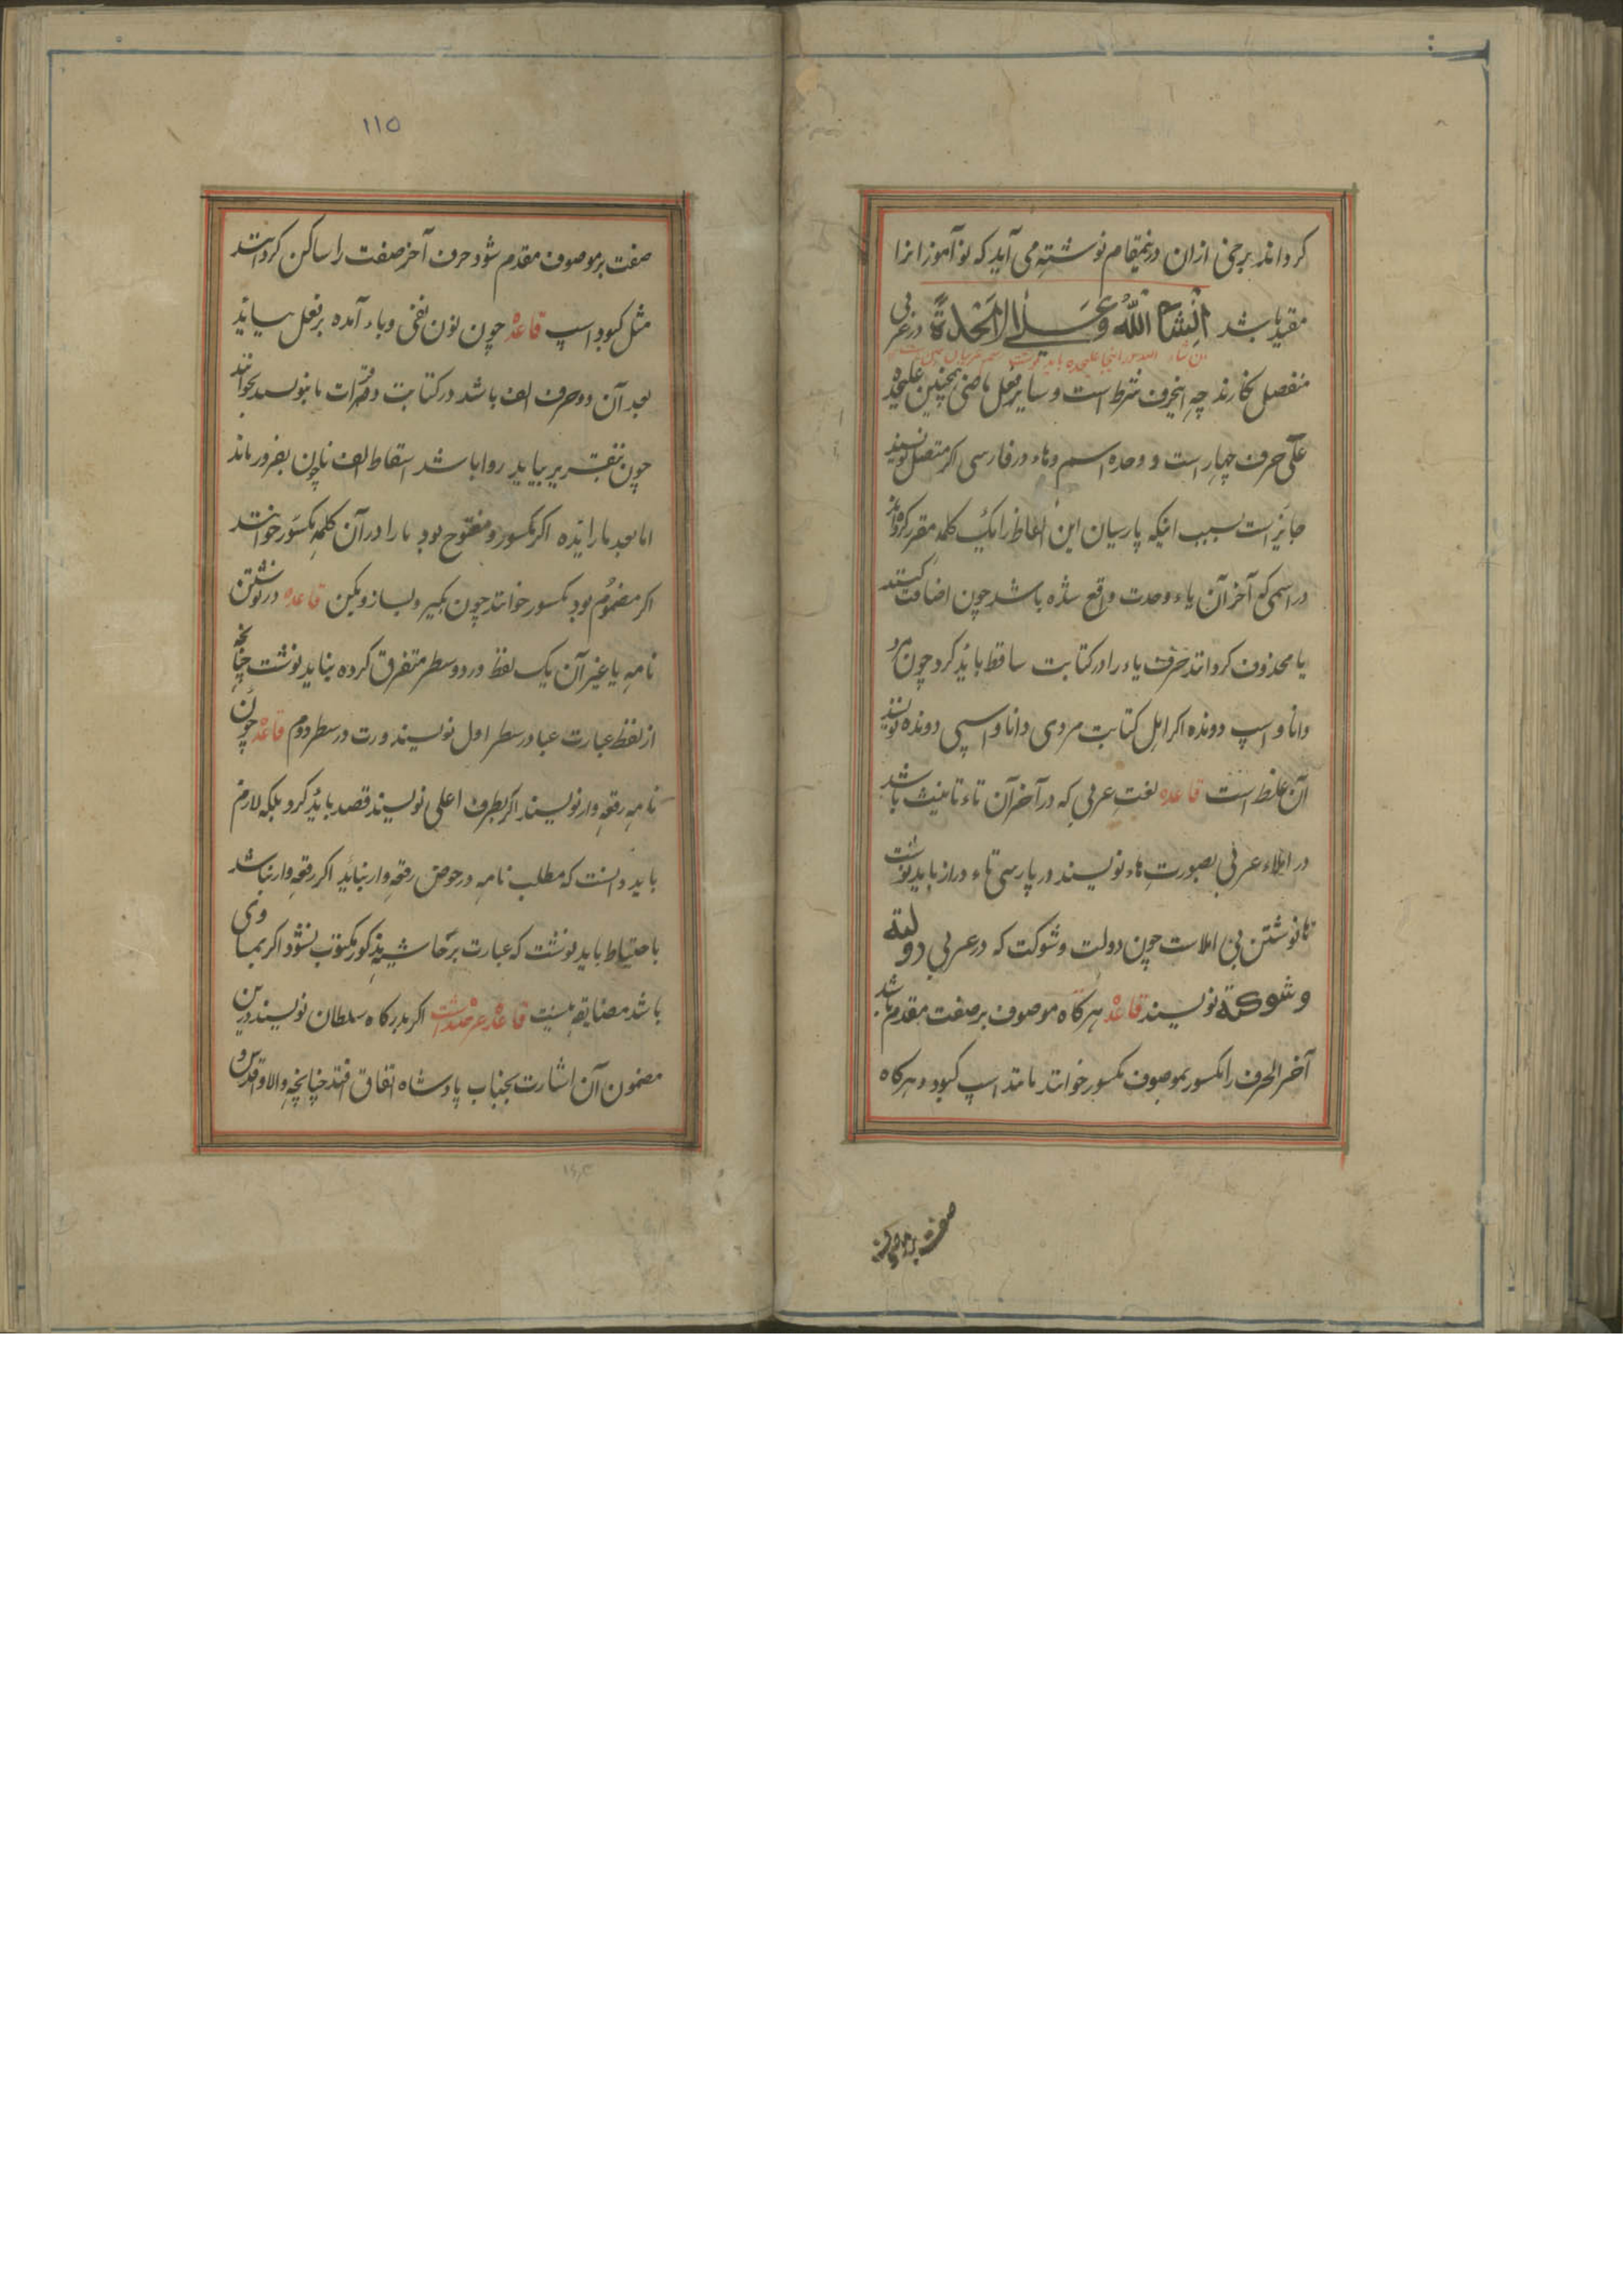 کرداند برخی ازان درینمقام نوشته می آید که نوآموزانرا
مقید باشد انشاالله وعلاحدة در عربی
منفصل نکارند چه اینحرف شرط است و سایر فعل ماضی همچنین علیحده
علی حرف جهار است و وحده اسم وهاء در فارسی اکر متصل نویسند
جایز است بسبب اینکه پارسیان این الفاظ را یک کلمه مقرر کرده اند
در اسمی که آخر آن یاء وحدت واقع شده باشد چون اضافت کنند
یا محذوف کردانند حرف یاء را در کتابت ساقط باید کرد چون مرد
دانا و اسپ دونده اکر اهل کتابت مردی دانا و اسپی دونده نویسند
آن غلط است قاعده لغت عربی که در آخر آن تاء تانیث باشد
در املاء عربی بصورت هاء نویسند در پارسی تاء دراز باید نوشت
ها نوشتن بی املاست چون دولت و شوکت که در عربی دولة
و شوکة نویسند قاعده هرکاه موصوف بر صفت مقدم باشد
آخر الحرف را مکسور بموصوف مکسور خوانند مانند اسپ کبود و هرکاه
صفت بر موصوف
۱۱۵
صفت بر موصوف مقدم شود حرف آخر صفت را ساکن کردانند
مثل کبود اسپ قاعده چون نون نفی وباء آمده بر فعل بیاید
بعد آن دو حرف الف باشد در کتابت وقرات نا بنویسند بخوانند
چون بتقریر بیاید روا باشد اسقاط الف ناچون بضرور ماند
اما بعد باء زایده اکر مکسور و مفتوح بود با را در آن کلمه مکسور خوانند
اکر مضموم بود مکسور خوانند چون بکیر و بساز و بکن قاعده در نوشتن
نامه یا غیر آن یک لفظ در دو سطر متفرق کرده نباید نوشت چنانچه
از لفظ عبارت عبا در سطر اول نویسند ورت در سطر دوم قاعده چون
نامه رقعه وار نویسند اکر بطرف اعلی نویسند قصد باید کرد بلکه لازم
باید دانست که مطلب نامه در حوض رقعه وار نیاید اکر رقعه وار نباشد
باحتیاط باید نوشت که عبارت بر حاشیه مذکور مکتوب نشود اکر بمساوی
باشد مضایقه نیست قاعده عرضداشت اکر بدرکاه سلطان نویسند درین
مضمون آن اشارت بجناب پادشاه اتفاق افتد چنانچه والا و اقدس و